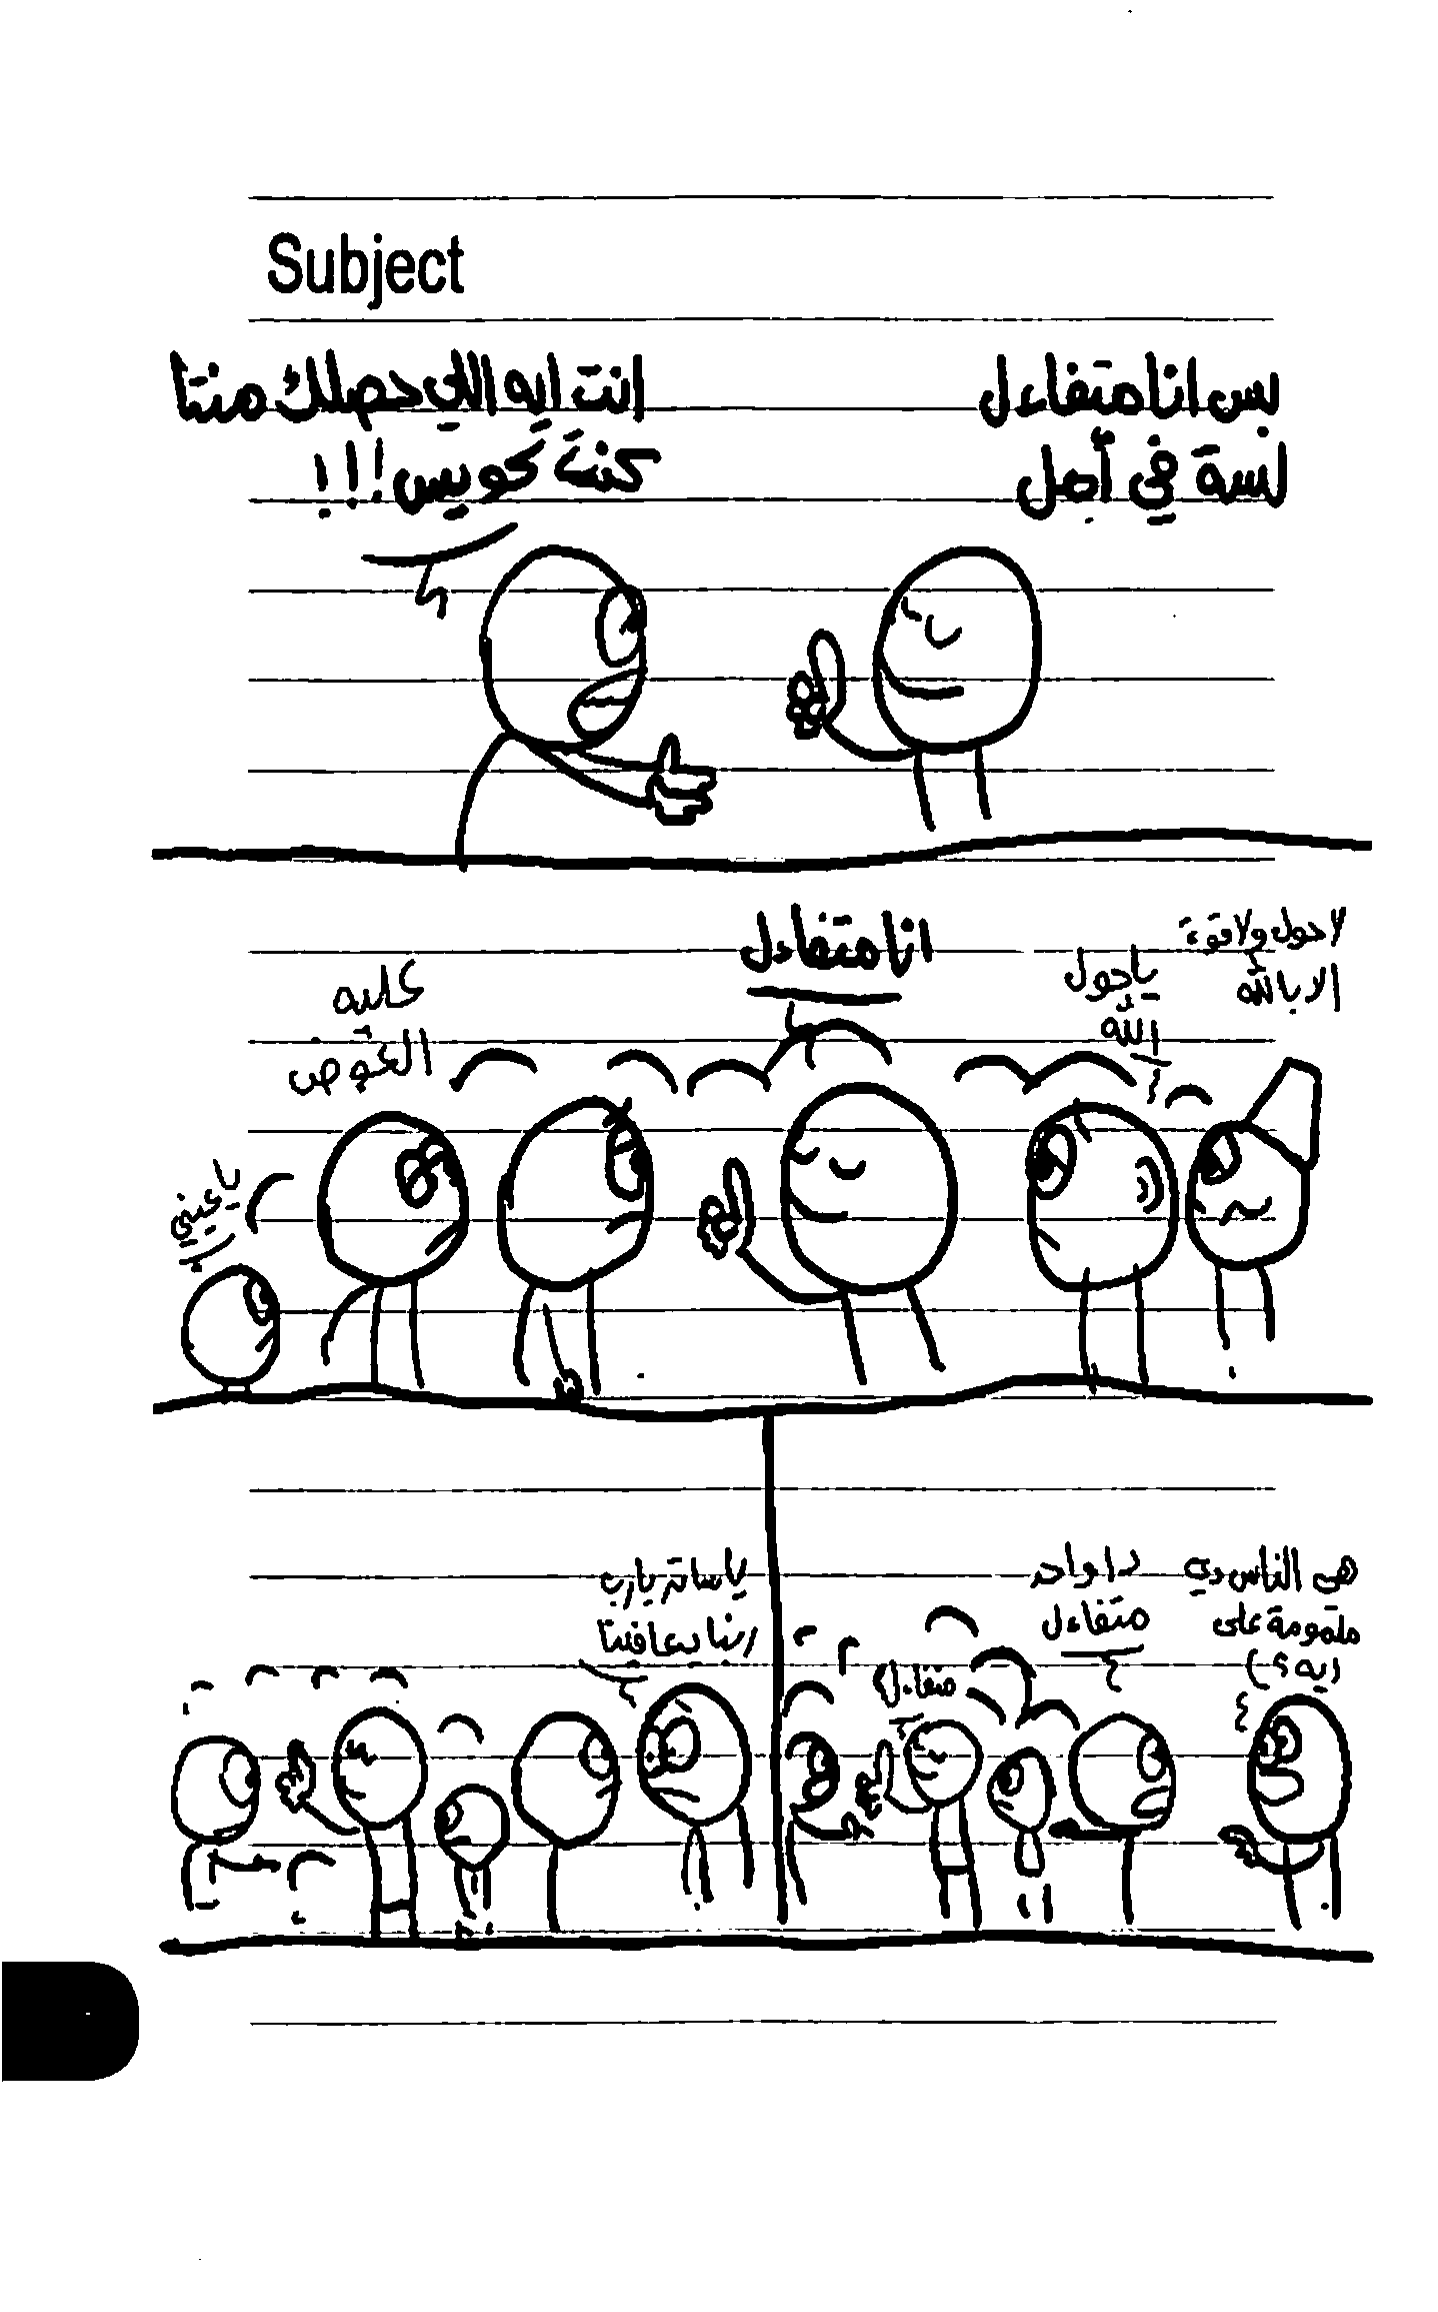 Subject
بس انا متفاءل
لسة في أمل
انت ايه اللي حصلك منتا
كنت كويس!!!
لا حول ولا قوة
الا بالله
ياحول
الله
انا متفاءل
عليه
العوض
ياعيني
هي الناس دي
ملمومة على
ايه؟
دا واحد
متفاءل
متفاءل
ياساتر يارب
ربنا يعافينا